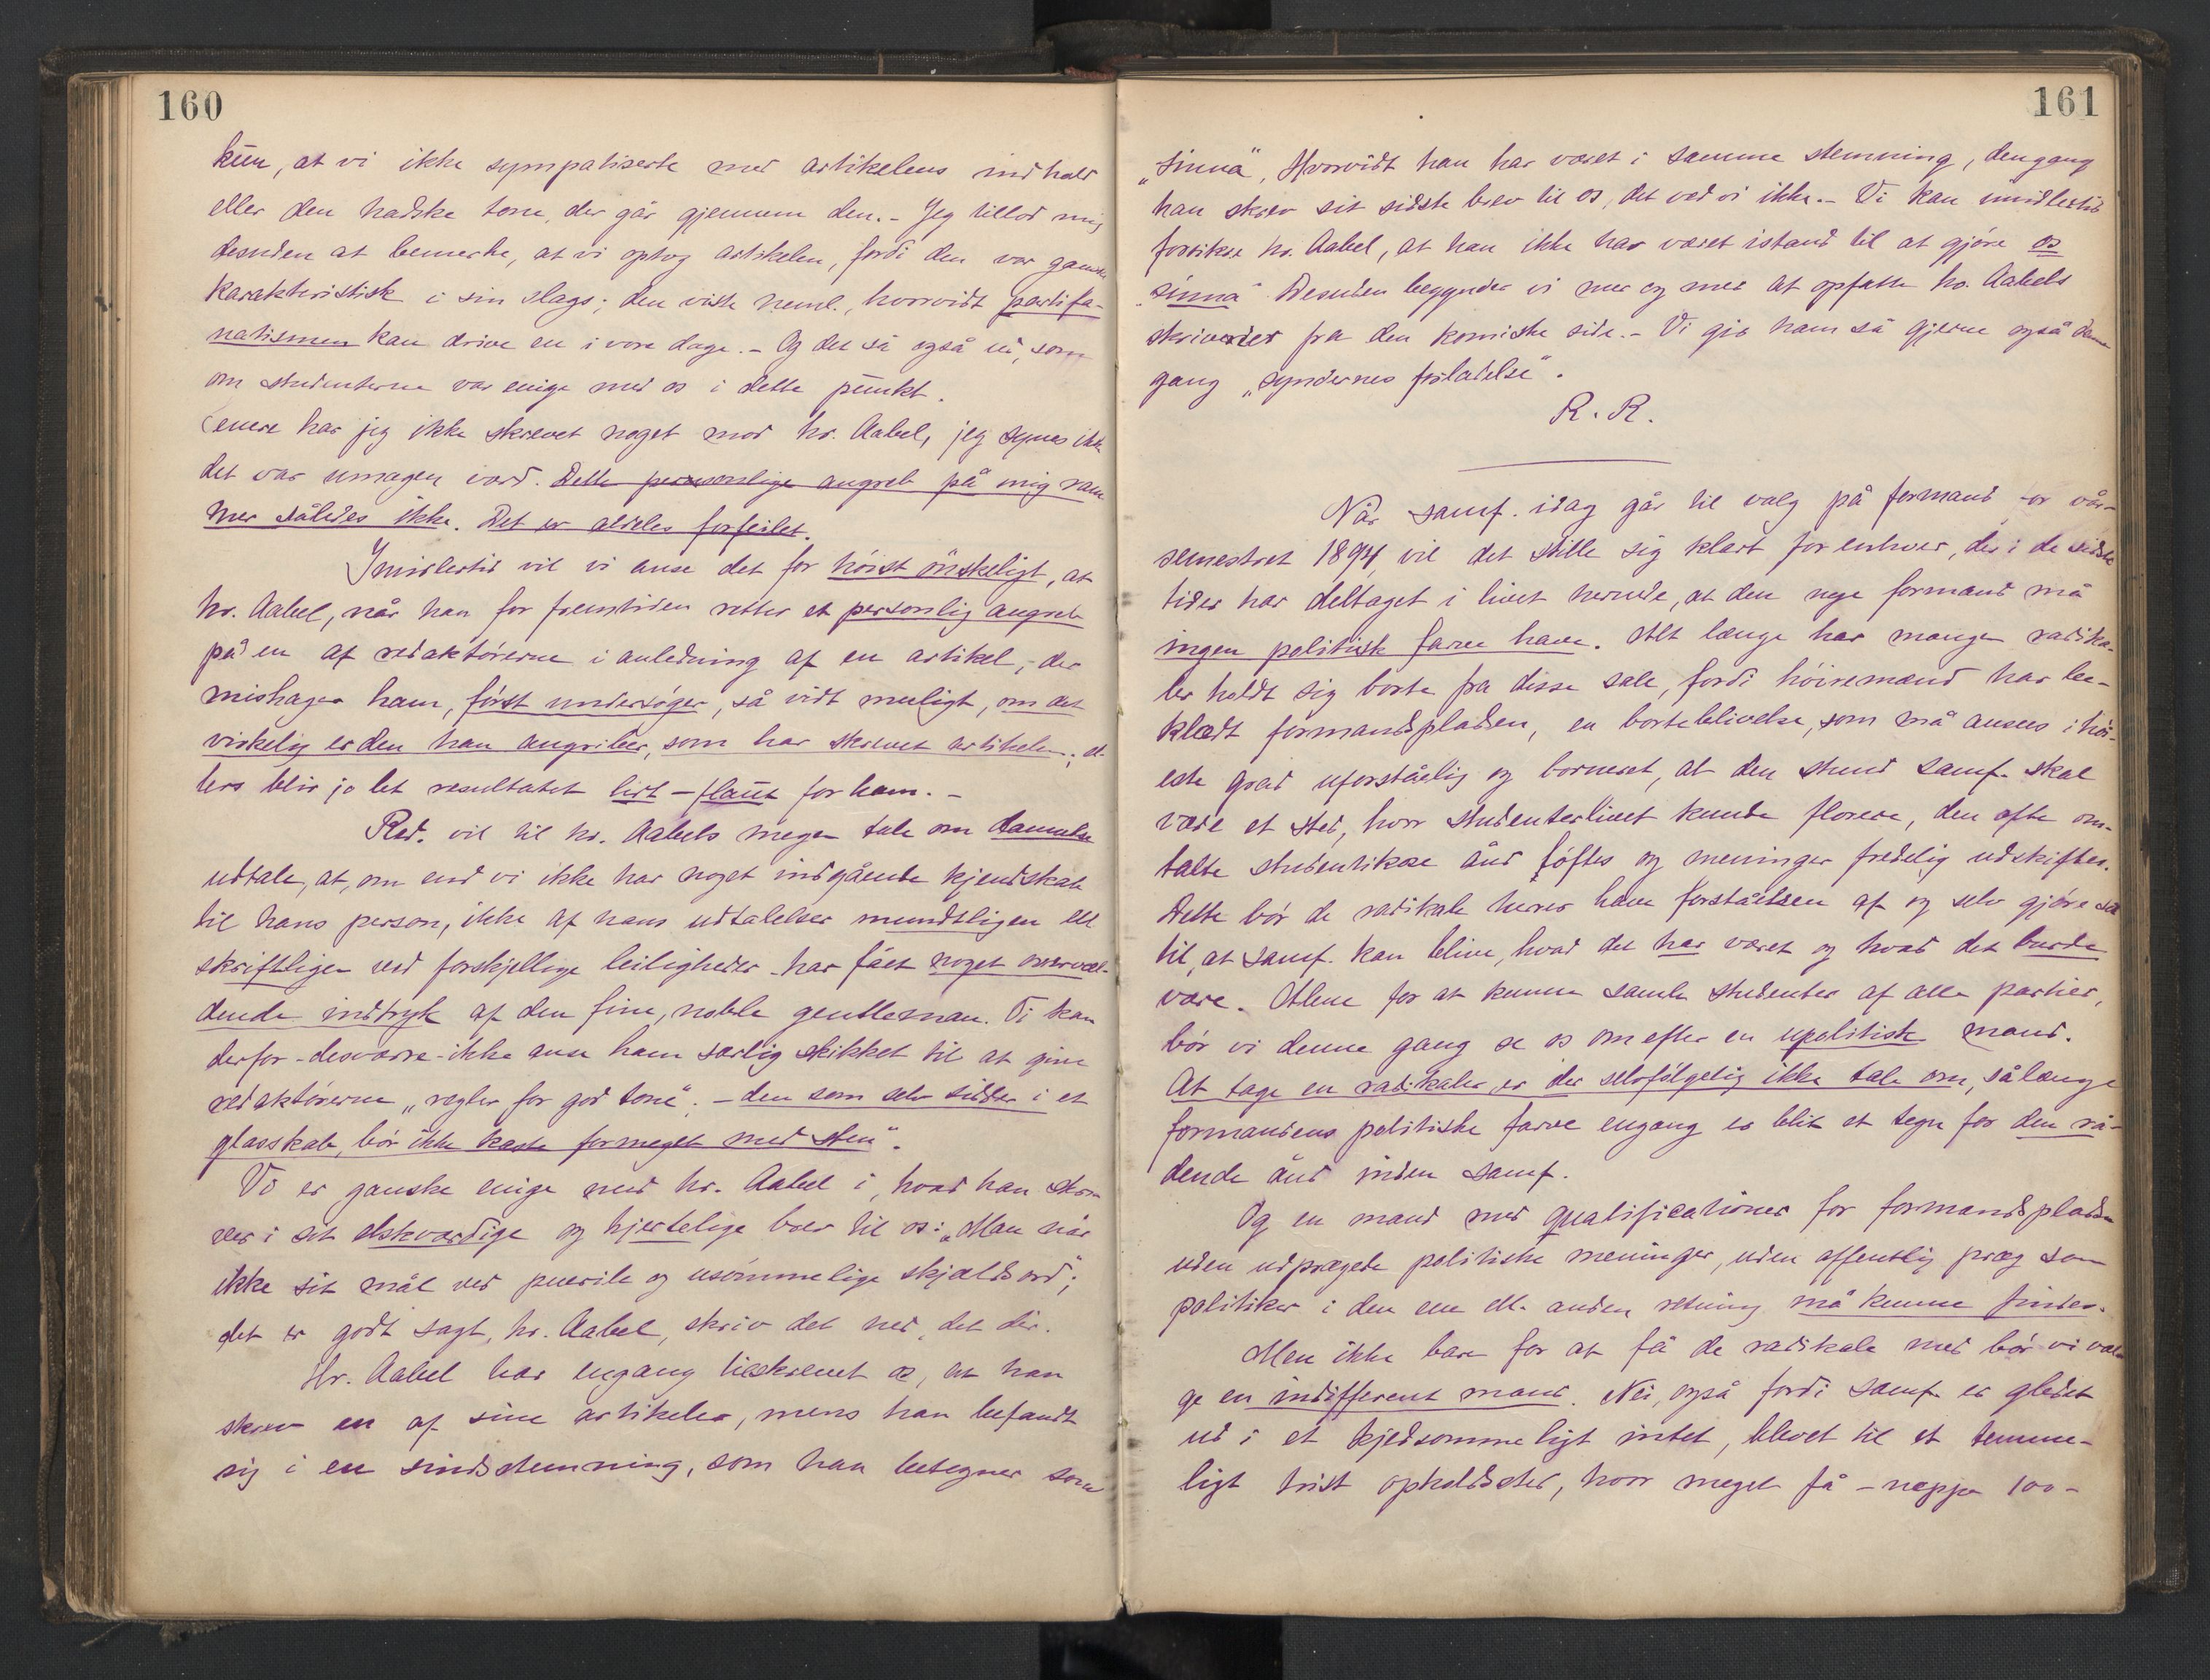 160
kun, at vi ikke sympatiserte med artikelens indhold
eller den hadske tone, der går gjennem den. – Jeg tillod mig
desuden at bemerke, at vi optog artikelen, fordi den var ganske
karakteristisk i sin slags; den viste neml., hvorvidt partifa-
natismen kan drive en i vore dage. – Og det så også ud, som
om studenterne var enige med os i dette punkt.
Senere har jeg ikke skrevet noget mod hr. Aabel, jeg synes ikke
det var umagen værd. Dette personlige angreb på mig ram-
mer således ikke. Det er aldeles forfeilet.
Imidlertid vil vi anse det for høist ønskeligt, at
hr. Aabel, når han for fremtiden retter et personlig angreb
på en af redaktørerne i anledning af en artikel, der
mishager ham, først undersøger, så vidt muligt, om det
virkelig er den han angriber, som har skrevet artikelen; el-
lers blir jo let resultatet lidt – flaut for ham. –
Red. vil til hr. Aabels megen tale om dannelse
udtale, at, om end vi ikke har noget indgående kjendskab
til hans person, ikke af hans udtalelser mundtligen ell
skriftligen ved forskjellige leiligheder har fået noget overvæl-
dende indtryk af den fine, noble gentleman. Vi kan
derfor – desværre – ikke anse ham særlig skikket til at give
redaktørerne „regler for god tone“. – den som selv sidder i et
glasskab, bør ikke kaste formeget med sten“.
Vi er ganske enige med hr. Aabel i, hvad han skri-
ver i sit elskværdige og hjertelige brev til os: „Man når
ikke sit mål ved puerile og usømmelige skjældsord“;
det er godt sagt, hr. Aabel, skriv det ned, det der.
Hr. Aabel har engang tilskrevet os, at han
skrev en af sine artikeler, mens han befandt
sig i en sindsstemning, som han betegner som
161
„sinna“, Hvorvidt han har været i samme stemning, dengang
han skrev sit sidste brev til os, det ved vi ikke. – Vi kan imidlertid
forsikre hr. Aabel, at han ikke har været istand til at gjøre os
„sinna“ Desuden begynder vi mer og mer at opfatte hr. Aabels
skriverier fra den komiske side. – Vi gir ham så gjerne også denne
gang „syndernes forladelse“.
R. R.
Når samf. idag går til valg på formand for vår-
semestret 1894, vil det stille sig klart for enhver, der i de sidste
tider har deltaget i livet hernede, at den nye formand må
ingen politisk farve have. Alt længe har mange radika-
ler holdt sig borte fra disse sale, fordi høiremænd har be-
klædt formandspladsen, en borteblivelse, som må ansees i høi-
este grad uforståelig og borneret, al den stund samf. skal
være et sted, hvor studenterlivet kunde florere, den ofte om-
talte studentikose ånd løftes og meninger fredelig udskiftes.
Dette bør de radikale herrer have forståelsen af og selv gjøre sit
til, at samf. kan blive, hvad det har været og hvad det burde
være. Alene for at kunne samle studenter af alle partier,
bør vi denne gang se os om efter en upolitisk mand.
At tage en radikaler er der selvfølgelig ikke tale om, sålænge
formandens politiske farve engang er blit et tegn for den rå-
dende ånd inden samf.
Og en mand med qualificationer for formandspladsen
uden udprægede politiske meninger, uden offentlig præg som
politiker i den ene ell. anden retning må kunne findes.
Men ikke bare for at få de radikale med bør vi væl-
ge en indifferent mand. Nei, også fordi samf. er gledet
ud i et kjedsommeligt intet, blevet til et temme-
ligt trist opholdssted, hvor meget få – neppe 100 –